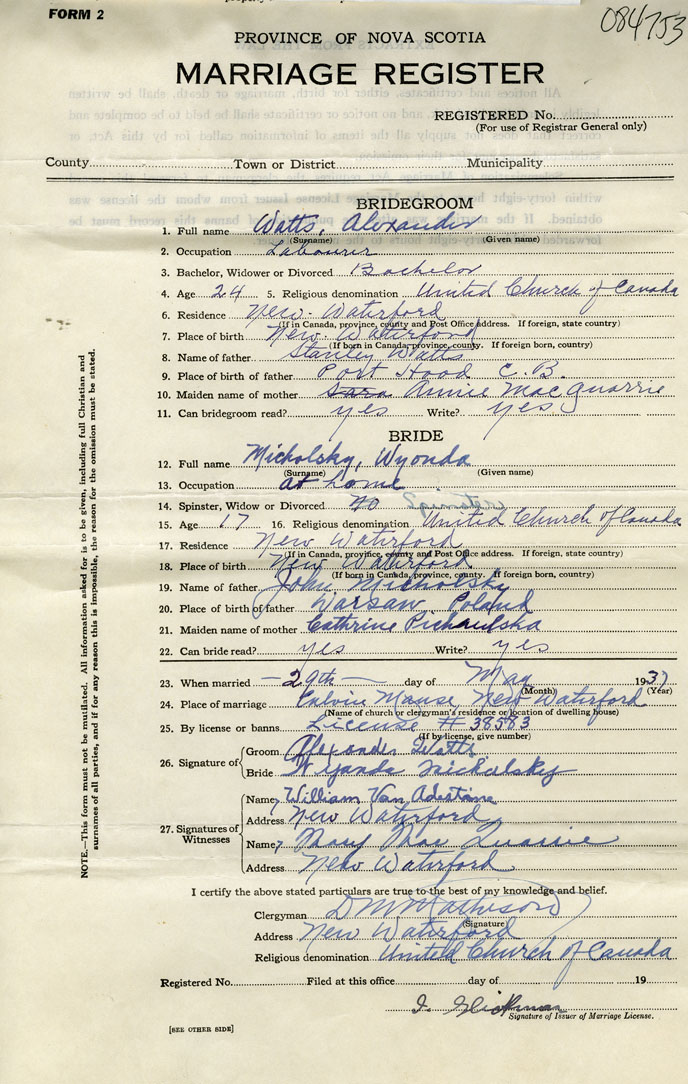 FORM 2
084753
PROVINCE OF NOVA SCOTIA
MARRIAGE REGISTER
REGISTERED No.
(For use of Registrar General only)
County Town or District Municipality
BRIDEGROOM
1. Full name Watts, Alexander
(Surname) (Given name)
2. Occupation Labourer
3. Bachelor, Widower or Divorced Bachelor
4. Age 24 5. Religious denomination United Church of Canada
6. Residence New-Waterford
(If in Canada, province, county and Post Office address. If foreign, state country)
7. Place of birth New-Waterford
(If born in Canada, province, county. If foreign born, country)
8. Name of father Stanley Watts
9. Place of birth of father Port Hood C.B.
10. Maiden name of mother Sara Annie MacQuarrie
11. Can bridegroom read? yes Write? yes
BRIDE
12. Full name Micholsky, Wyonda
(Surname) (Given name)
13. Occupation at home
14. Spinster, Widow or Divorced no
15. Age 17 16. Religious denomination United Church of Canada
17. Residence New Waterford
(If in Canada, province, county and Post Office address. If foreign, state country)
18. Place of birth New Waterford
(If born in Canada, province, county. If foreign born, country)
19. Name of father John Micholsky
20. Place of birth of father Warsaw Poland
21. Maiden name of mother Cathrine
22. Can bride read? yes Write? yes
23. When married -29th- day of May 1937
(Month) (Year)
24. Place of marriage Calvin Manse New Waterford
(Name of church or clergyman's residence or location of dwelling house)
25. By license or banns License # 38583
(If by license, give number)
26. Signature of Groom Alexander Watts
Bride Wyanda Nickolsky
27. Signatures of Witnesses
Name William Van Adestine
Address New Waterford
Name Mary MacQuarrie
Address New Waterford
I certify the above stated particulars are true to the best of my knowledge and belief.
Clergyman D M Mathieson
(Signature)
Address New Waterford
Religious denomination United Church of Canada
Registered No. Filed at this office day of 19
I. Glickman
Signature of Issuer of Marriage License.
[SEE OTHER SIDE]
NOTE.—This form must not be mutilated. All information asked for is to be given, including full Christian and
surnames of all parties, and if for any reason this is impossible, the reason for the omission must be stated.